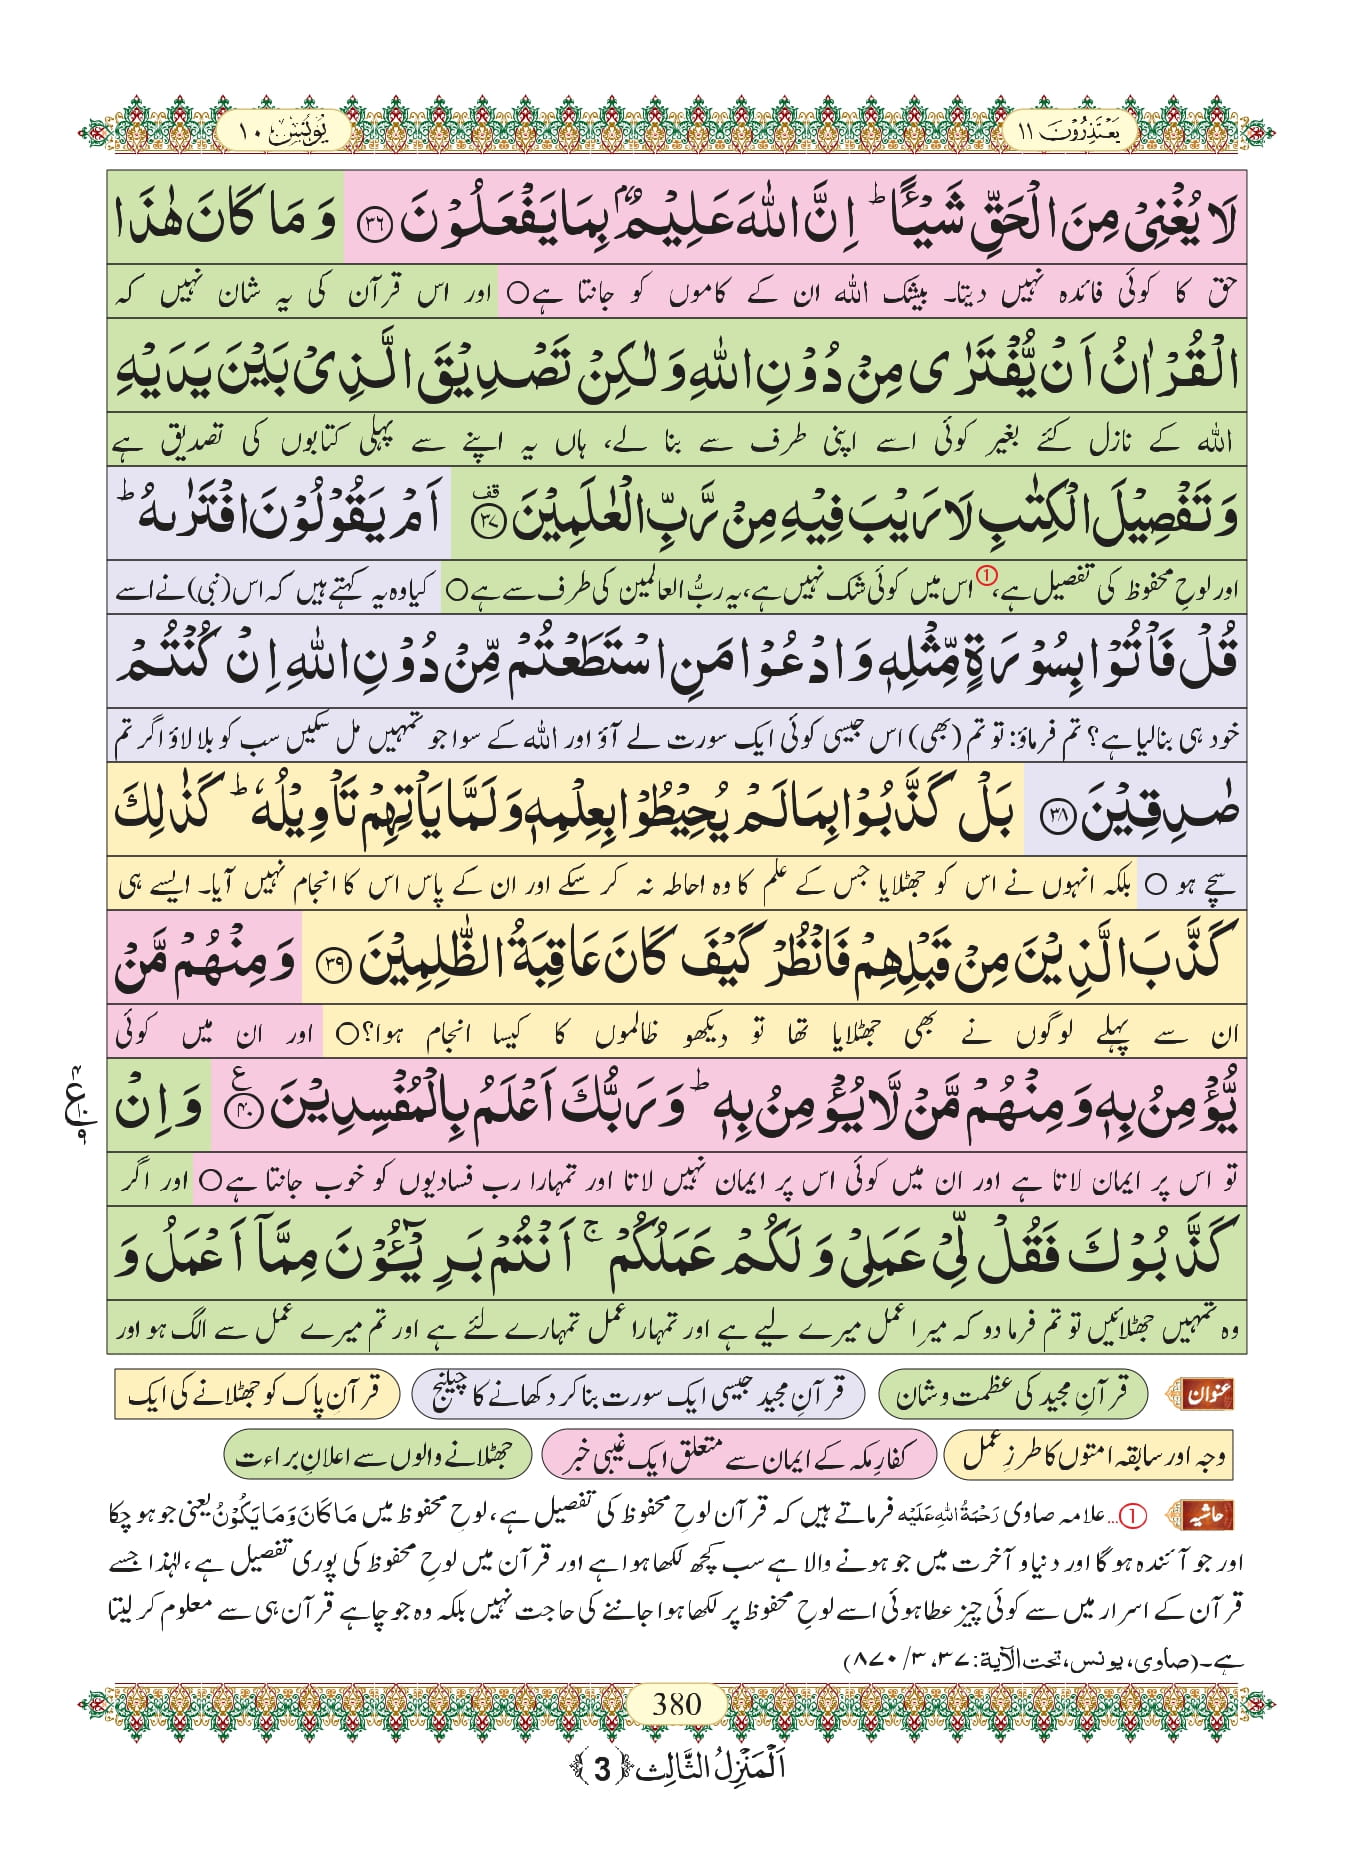 یَعْتَذِرُوْنَ ۱۱
یُوْنُس ۱۰
لَا یُغْنِیْ مِنَ الْحَقِّ شَیْــٴًـاؕ اِنَّ اللّٰهَ عَلِیْمٌۢ بِمَا یَفْعَلُوْنَ ﴿۳۶﴾ وَ مَا كَانَ هٰذَا
حق کا کوئی فائدہ نہیں دیتا۔ بیشک اللہ ان کے کاموں کو جانتا ہے○ اور اس قرآن کی یہ شان نہیں کہ
الْقُرْاٰنُ اَنْ یُّفْتَرٰى مِنْ دُوْنِ اللّٰهِ وَ لٰكِنْ تَصْدِیْقَ الَّذِیْ بَیْنَ یَدَیْهِ
اللہ کے نازل کئے بغیر کوئی اسے اپنی طرف سے بنا لے، ہاں یہ اپنے سے پہلی کتابوں کی تصدیق ہے
وَ تَفْصِیْلَ الْكِتٰبِ لَا رَیْبَ فِیْهِ مِنْ رَّبِّ الْعٰلَمِیْنَ قف ﴿۳۷﴾ اَمْ یَقُوْلُوْنَ افْتَرٰىهُؕ
اور لوحِ محفوظ کی تفصیل ہے،① اس میں کوئی شک نہیں ہے، یہ ربُّ العالمین کی طرف سے ہے○ کیا وہ یہ کہتے ہیں کہ اس (نبی) نے اسے
قُلْ فَاْتُوْا بِسُوْرَةٍ مِّثْلِهٖ وَ ادْعُوْا مَنِ اسْتَطَعْتُمْ مِّنْ دُوْنِ اللّٰهِ اِنْ كُنْتُمْ
خود ہی بنالیا ہے؟ تم فرماؤ: تو تم (بھی) اس جیسی کوئی ایک سورت لے آؤ اور اللہ کے سوا جو تمہیں مل سکیں سب کو بلا لاؤ اگر تم
صٰدِقِیْنَ ﴿۳۸﴾ بَلْ كَذَّبُوْا بِمَا لَمْ یُحِیْطُوْا بِعِلْمِهٖ وَ لَمَّا یَاْتِهِمْ تَاْوِیْلُهٗؕ كَذٰلِكَ
سچے ہو ○ بلکہ انہوں نے اس کو جھٹلایا جس کے علم کا وہ احاطہ نہ کر سکے اور ان کے پاس اس کا انجام نہیں آیا۔ ایسے ہی
كَذَّبَ الَّذِیْنَ مِنْ قَبْلِهِمْ فَانْظُرْ كَیْفَ كَانَ عَاقِبَةُ الظّٰلِمِیْنَ ﴿۳۹﴾ وَ مِنْهُمْ مَّنْ
ان سے پہلے لوگوں نے بھی جھٹلایا تھا تو دیکھو ظالموں کا کیسا انجام ہوا؟○ اور ان میں کوئی
یُّؤْمِنُ بِهٖ وَ مِنْهُمْ مَّنْ لَّا یُؤْمِنُ بِهٖؕ وَ رَبُّكَ اَعْلَمُ بِالْمُفْسِدِیْنَ ع ﴿۴۰﴾ وَ اِنْ
۴ ع ۱۰ ۹
تو اس پر ایمان لاتا ہے اور ان میں کوئی اس پر ایمان نہیں لاتا اور تمہارا رب فسادیوں کو خوب جانتا ہے○ اور اگر
كَذَّبُوْكَ فَقُلْ لِّیْ عَمَلِیْ وَ لَكُمْ عَمَلُكُمْۚ اَنْتُمْ بَرِیْٓــٴُـوْنَ مِمَّاۤ اَعْمَلُ وَ
وہ تمہیں جھٹلائیں تو تم فرما دو کہ میرا عمل میرے لیے ہے اور تمہارا عمل تمہارے لئے ہے اور تم میرے عمل سے الگ ہو اور
عنوان قرآنِ مجید کی عظمت و شان قرآنِ مجید جیسی ایک سورت بنا کر دکھانے کا چیلنج قرآنِ پاک کو جھٹلانے کی ایک
وجہ اور سابقہ امتوں کا طرزِ عمل کفارِ مکہ کے ایمان سے متعلق ایک غیبی خبر جھٹلانے والوں سے اعلانِ براءت
حاشیہ ①...علامہ صاوی رَحْمَۃُ اللہِ عَلَیْہ فرماتے ہیں کہ قرآن لوحِ محفوظ کی تفصیل ہے، لوحِ محفوظ میں مَا كَانَ وَ مَا یَكُوْنُ یعنی جو ہو چکا
اور جو آئندہ ہو گا اور دنیا و آخرت میں جو ہونے والا ہے سب کچھ لکھا ہوا ہے اور قرآن میں لوحِ محفوظ کی پوری تفصیل ہے، لہٰذا جسے
قرآن کے اسرار میں سے کوئی چیز عطا ہوئی اسے لوحِ محفوظ پر لکھا ہوا جاننے کی حاجت نہیں بلکہ وہ جو چاہے قرآن ہی سے معلوم کر لیتا
ہے۔ (صاوی، یونس، تحت الآیۃ: ۳۷، ۳/ ۸۷۰)
380
اَلْمَنْزِلُ الثَّالِث ﴿3﴾